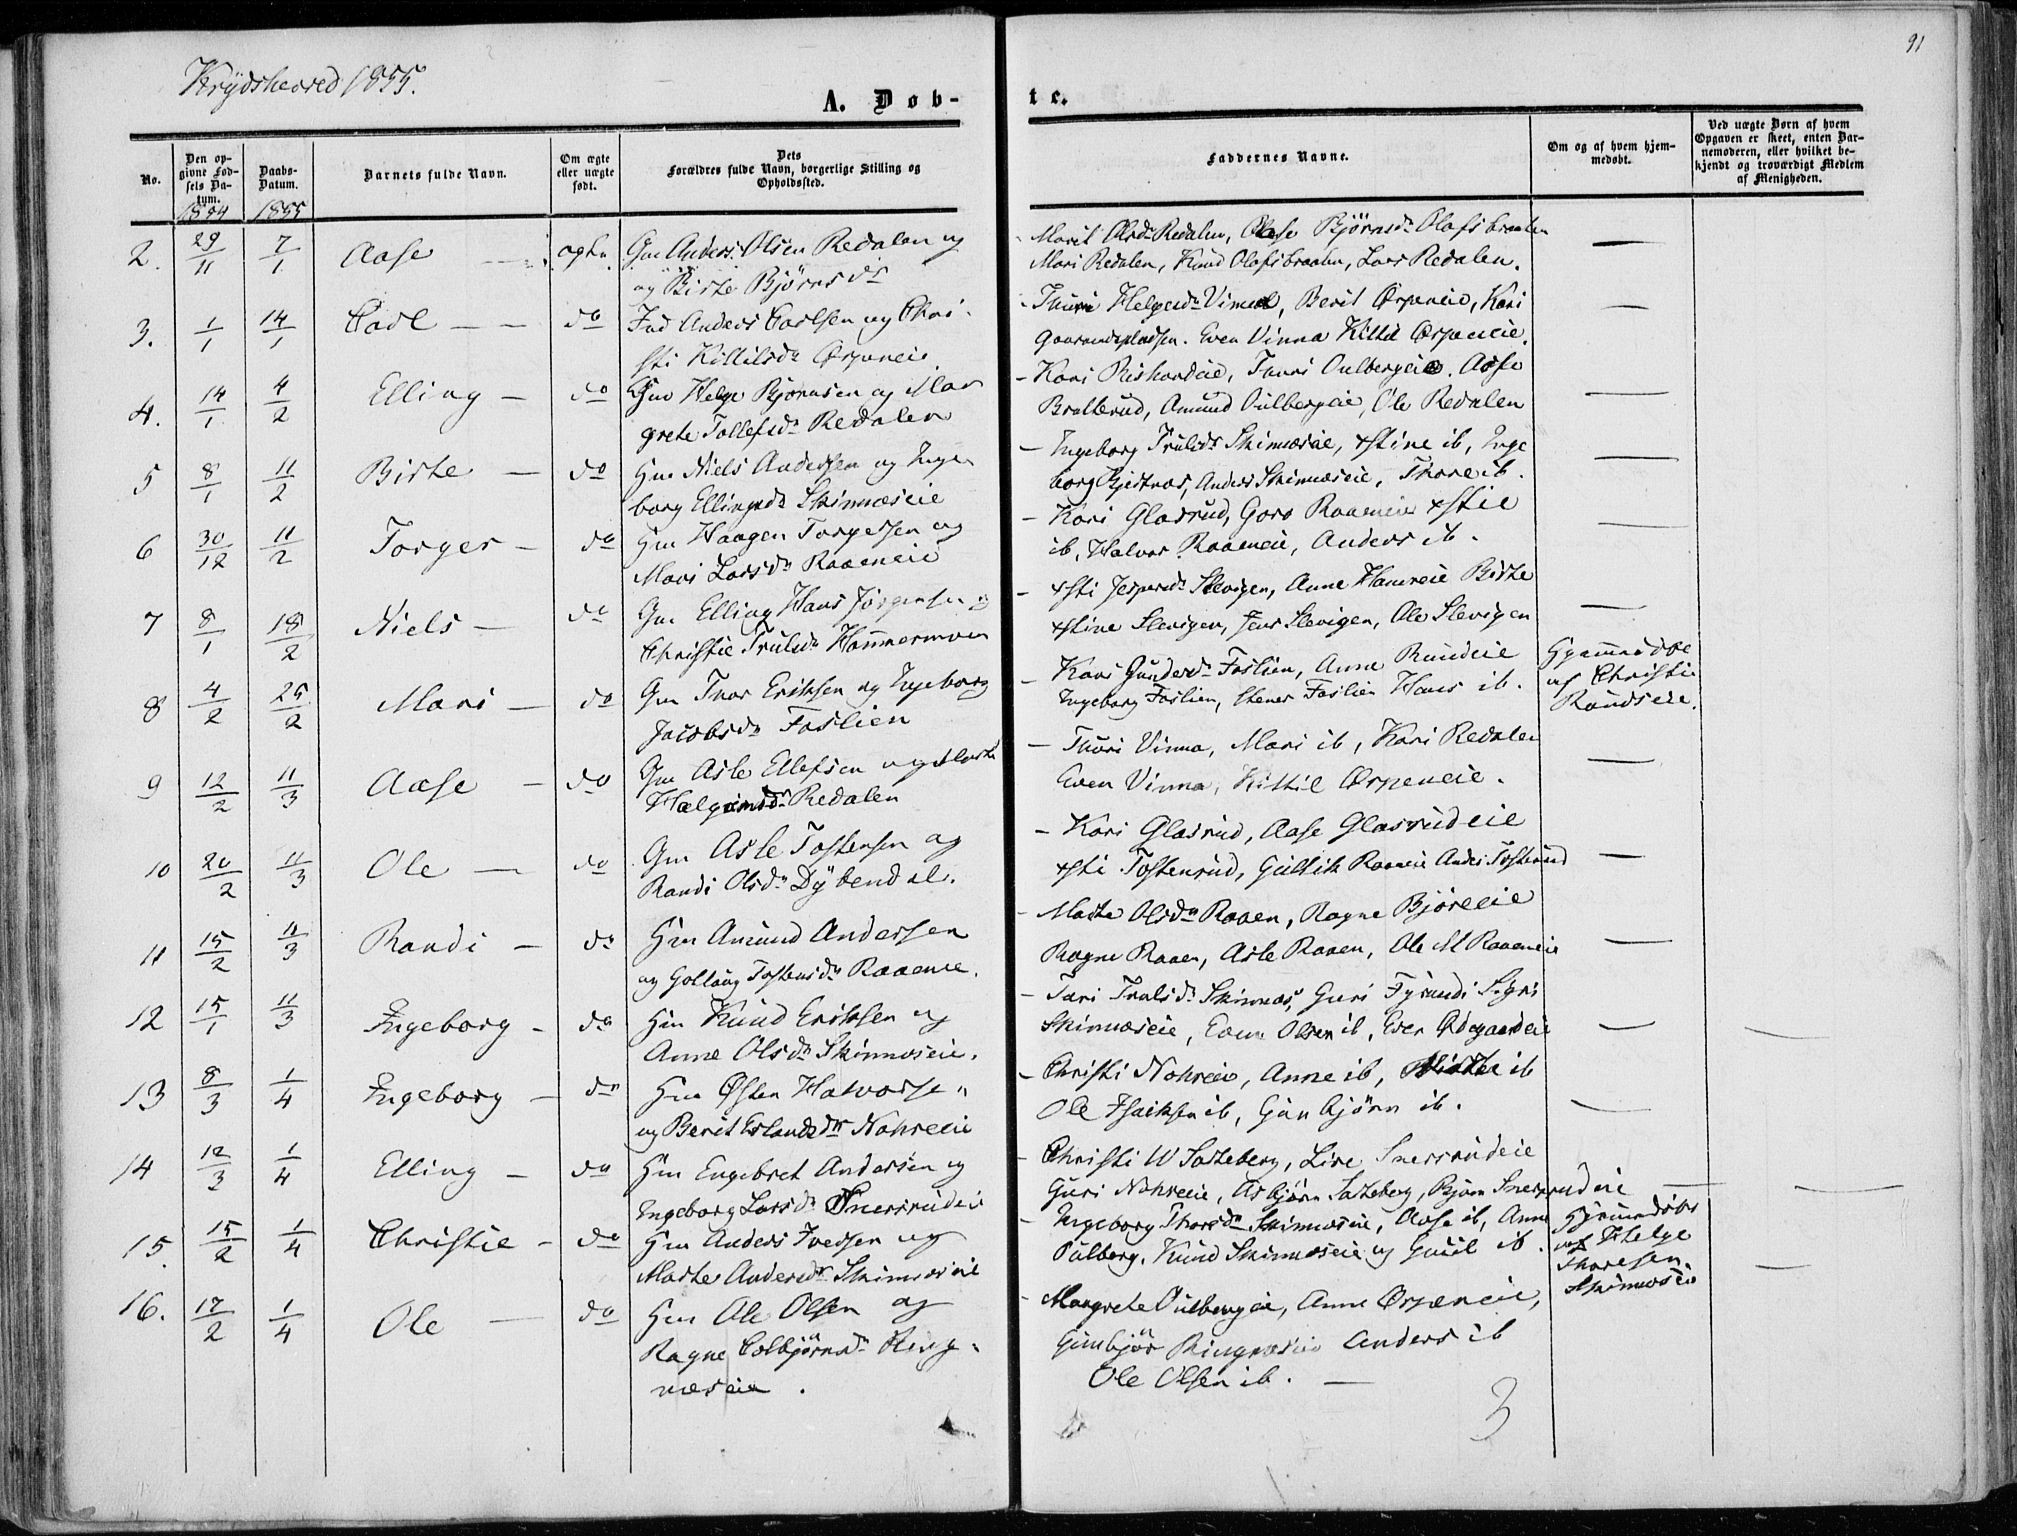 91
Krydsherred 1855.
A. Døb-
te.
No.
Den opgivne Fødsels Datum.
Daabs-Datum.
Barnets fulde Navn.
Om ægte eller uægte født.
Dets Forældres fulde Navn, borgerlige Stilling og Opholdssted.
Faddernes Navne.
Om og af hvem hjemmedøbt.
Ved uægte Børn af hvem Opgaven er skeet, enten Barnemoderen, eller hvilket bekjendt og troværdigt Medlem af Menigheden.
1854 1855
2. 29/11 7/1 Aase — ægte Gm Anders Olsen Redalen og
og Birte Bjørnsdr
Marit Olsdr Redalen, Aase Bjørnsdr Olafsbraaten
Mari Redalen, Knud Olafsbraaten, Lars Redalen. —
3. 1/1 14/1 Carl — — do Ind Anders Carlsen og Chri-
sti Kittilsdr Ørpeneie
Thuri Helgesdr Vinna, Berit Ørpeneie, Kari
Even Vinna Kittil Ørpeneie. —
4. 14/1 4/2 Elling — do Gm Helge Bjørnsen og Mar
grete Tollefsdr Redalen
Kari Riskardeie, Thuri Oulbergeie. Aase
Bratterud, Amund Oulbergeie, Ole Redalen —
5 8/1 11/2 Birte — do Hm Niels Andersen og Inge
borg Ellingsdr Skinnæseie
Ingeborg Trulsdr Skinnæseie, Xstine ib, Inge
borg Bjertnæs, Anders Skinnæseie, Thore ib. —
6 30/12 11/2 Torger — do Hm Haagen Torgersen og
Mari Larsdr Raaeneie
Kari Glasrud, Goro Raaeneie Xstie
ib, Halvor Raaeneie, Anders ib. —
7 8/1 18/2 Niels — do Gm Elling Hans Jørgensen og
Christie Trulsdr Hammermoen
Xsti Jespersdr Slevigen, Anne Hamreie Birte
Xstine Slevigen, Jens Slevigen, Ole Slevigen —
8 4/2 25/2 Mari — do Gm Ivar Eriksen og Ingeborg
Jacobsdr Foslien
Kari Gundersdr Foslien, Anne Rundeie
Ingeborg Foslien, Stener Foslien Hans ib.
Hjemmedøbt
af Christie
Randseie.
9 12/2 11/3 Aase — do Gm Asle Ellefsen og Marte
Helgesdr Redalen
Thuri Vinna, Mari ib, Kari Redalen
Even Vinna, Kittil Ørpeneie. —
10 20/2 11/3 Ole — do Gm Asle Tostensen og
Randi Olsdr Dybendal.
Kari Glasrud, Aase Glasrudeie
Xsti Tostenrud, Gullik Raaeneie Anders Tostenrud —
11 15/2 11/3 Randi — do Hm Amund Andersen
og Gollaug Tostensdr Raaeneie.
Marte Olsdr Raaen, Ragne Bjøreeie
Ragne Raaen, Asle Raaen, Ole M Raaeneie —
12 15/1 11/3 Ingeborg - do Hm Knud Eriksen og
Anne Olsdr Skinnæseie.
Turi Trulsdr Skinnæs, Guri Sigri
Skinnæseie, Even Olsen ib, Even Ødegaardeie —
13 8/3 1/4 Ingeborg - do Hm Østen Halvorse"
og Berit Erlandsdr Nohreeie
Christi Nohreeie, Anne ib, ib
Ole Isaksen ib, Gunbjørn ib. —
14 12/3 1/4 Elling — do Hm Engebret Andersen og
Ingeborg Larsdr Snersrudeie
Christi W Sateberg, Live Snersrudeie
Guri Nohreeie, Asbjørn Sateberg, Bjørn Snersrudeie —
15. 15/2 1/4 Christie - do Hm Anders Iversen og
Marte Andersdr Skinnæseie
Ingeborg Thoresdr Skinnæseie, Aase ib, Anne
Oulberg. Knud Skinnæseie og ib.
Hjemmedøbt
af Helge
Thoresen
Skinnæseie
16. 17/2 1/4 Ole — do Hm Ole Olsen og
Ragne Colbjørnsdr Ring-
næseie.
Margrete Oulbergeie, Anne Ørpeneie,
Gunbjør Ringnæseie Anders ib
Ole Olsen ib. —
3